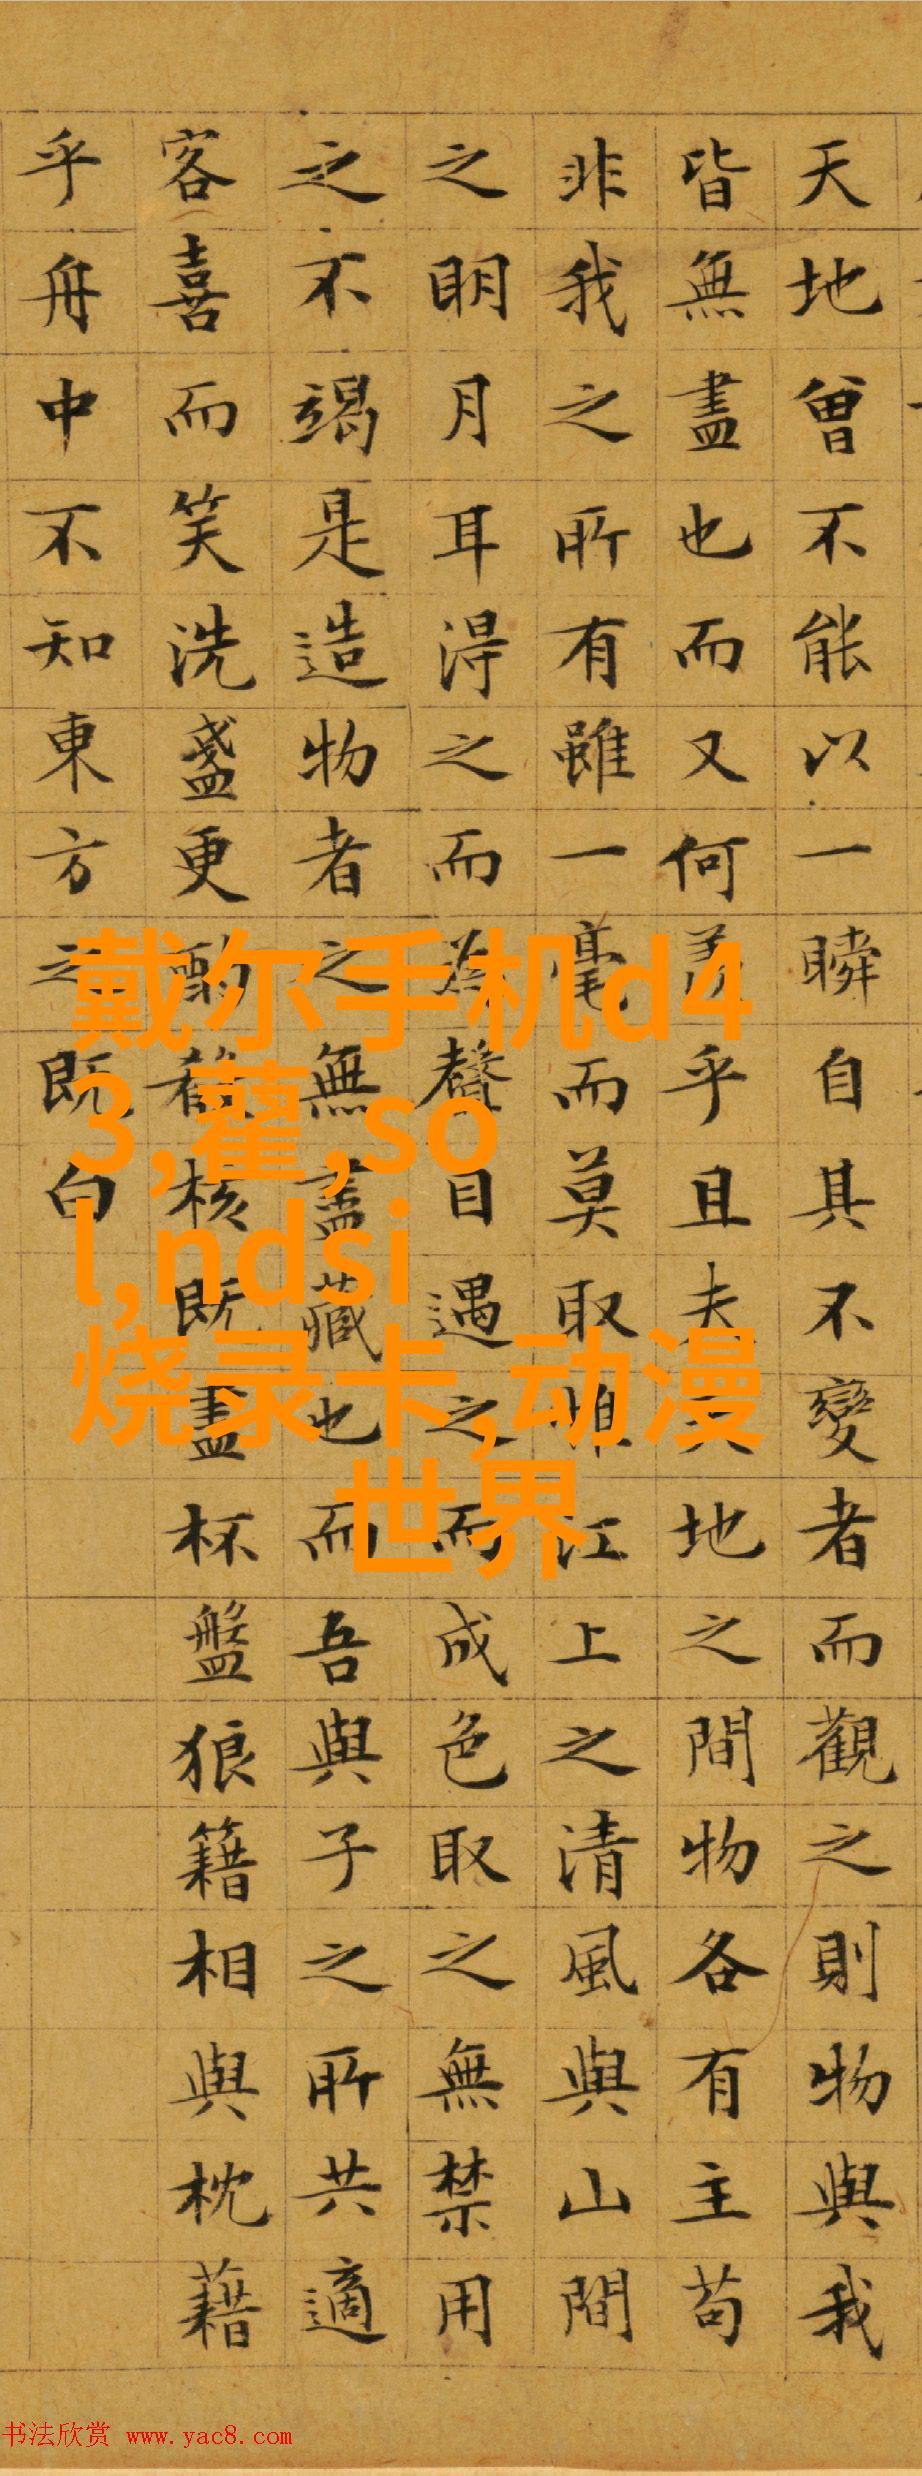 天地曾不能以一瞬自其不變者而觀之則物與我
皆無盡也而又何羨乎且夫天地之間物各有主苟
非我之所有雖一毫而莫取惟江上之清風與山間
之明月耳得之而為聲目遇之而成色取之無禁用
之不竭是造物者之無盡藏也而吾與子之所共適
客喜而笑洗盞更酌肴核既盡杯盤狼籍相與枕藉
乎舟中不知東方之既白
戴尔手机d4
3,藋,so
l,ndsi
烧录卡,动漫
世界
书法欣赏 www.yac8.com